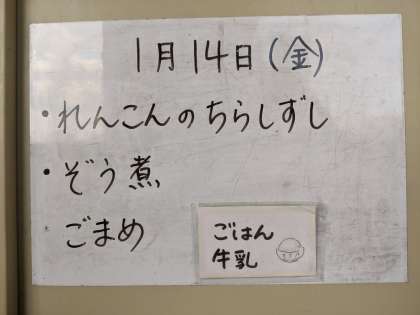 1月14日(金)
・れんこんのちらしずし
・ぞう煮
ごまめ
ごはん
牛乳